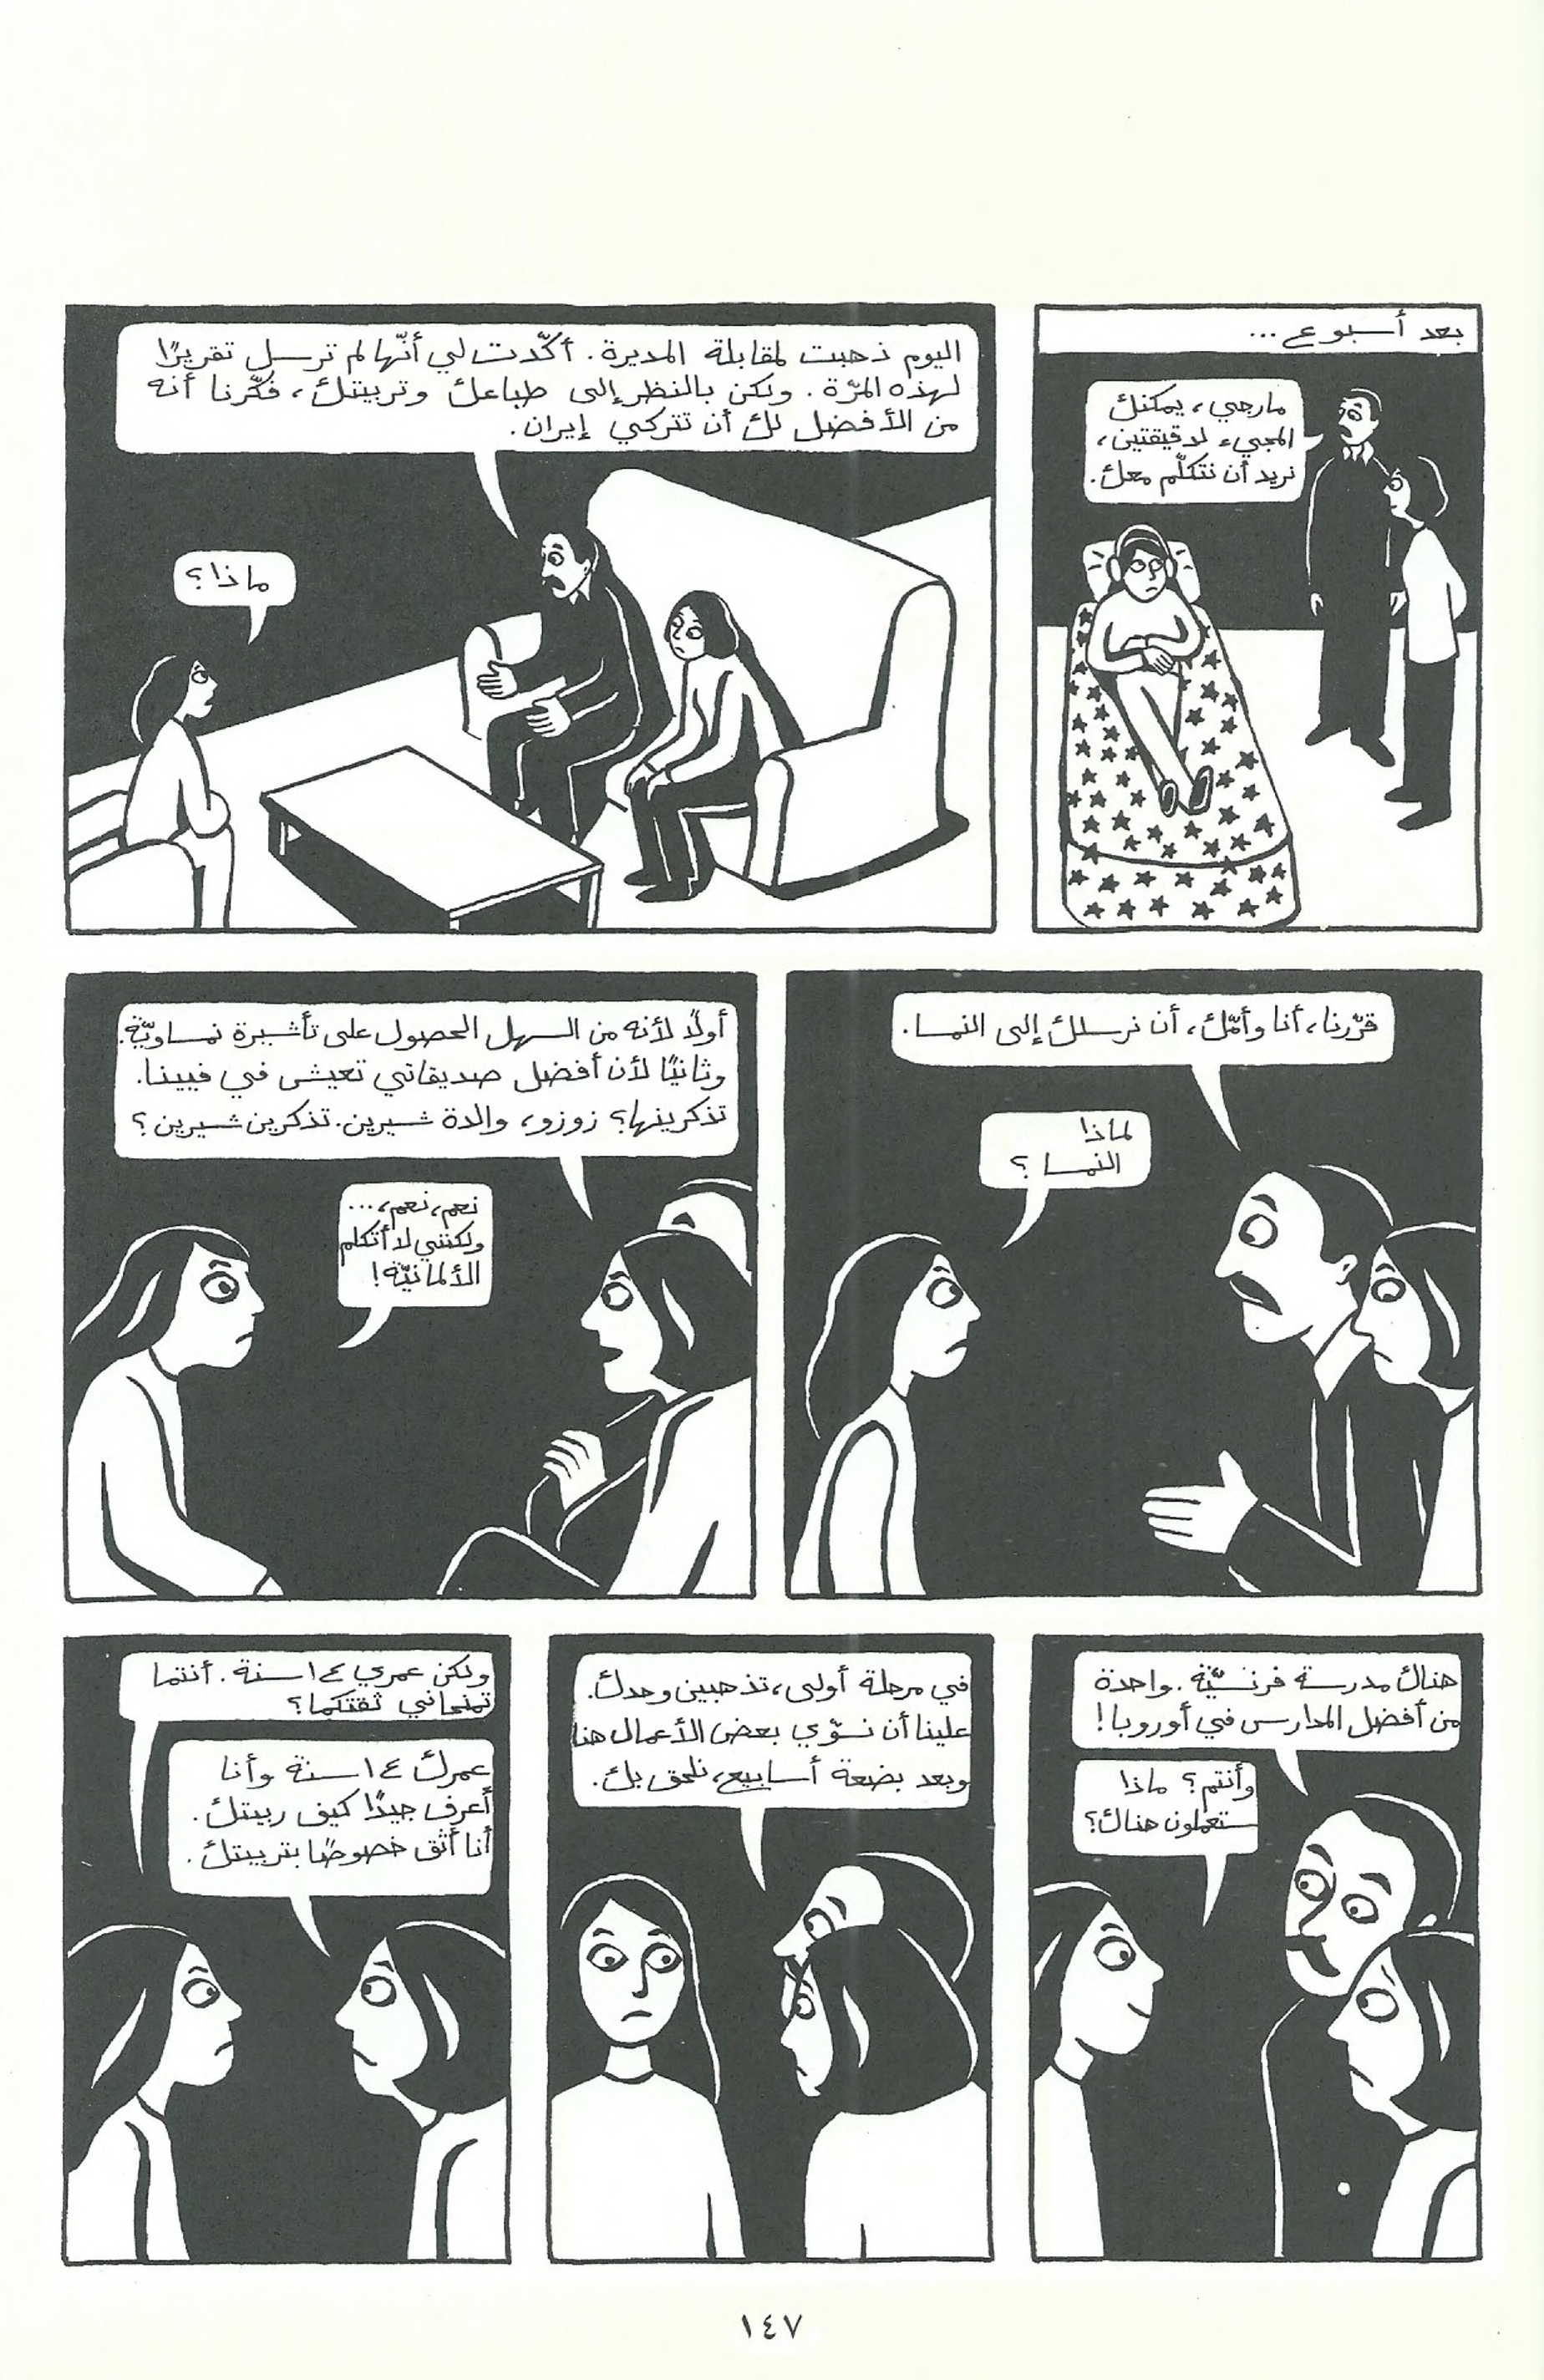 بعد أسبوع ...
مارجي، يمكنك
المجيء لدقيقتين،
نريد أن نتكلّم معك.
اليوم ذهبت لمقابلة المديرة. أكّدت لي أنّها لم ترسل تقريرًا
لهذه المرّة. ولكن بالنظر إلى طباعك وتربيتك، فكّرنا أنه
من الأفضل لك أن تتركي إيران.
ماذا؟
قرّرنا، أنا وأمّك، أن نرسلك إلى النمسا.
لماذا
النمسا؟
أولًا لأنه من السهل الحصول على تأشيرة نمساويّة.
وثانيًا لأن أفضل صديقاتي تعيش في فيينا.
تذكرينها؟ زوزو، والدة شيرين. تذكرين شيرين؟
نعم، نعم، ...
ولكنني لا أتكلم
الألمانيّة!
هناك مدرسة فرنسيّة. واحدة
من أفضل المدارس في أوروبا!
وأنتم؟ ماذا
ستعملون هناك؟
في مرحلة أولى، تذهبين وحدك.
علينا أن نسوّي بعض الأعمال هنا
وبعد بضعة أسابيع، نلحق بك.
ولكن عمري ١٤ سنة. أنتما
تمنحاني ثقتكما؟
عمرك ١٤ سنة وأنا
أعرف جيدًا كيف ربيتك.
أنا أثق خصوصًا بتربيتك.
١٤٧